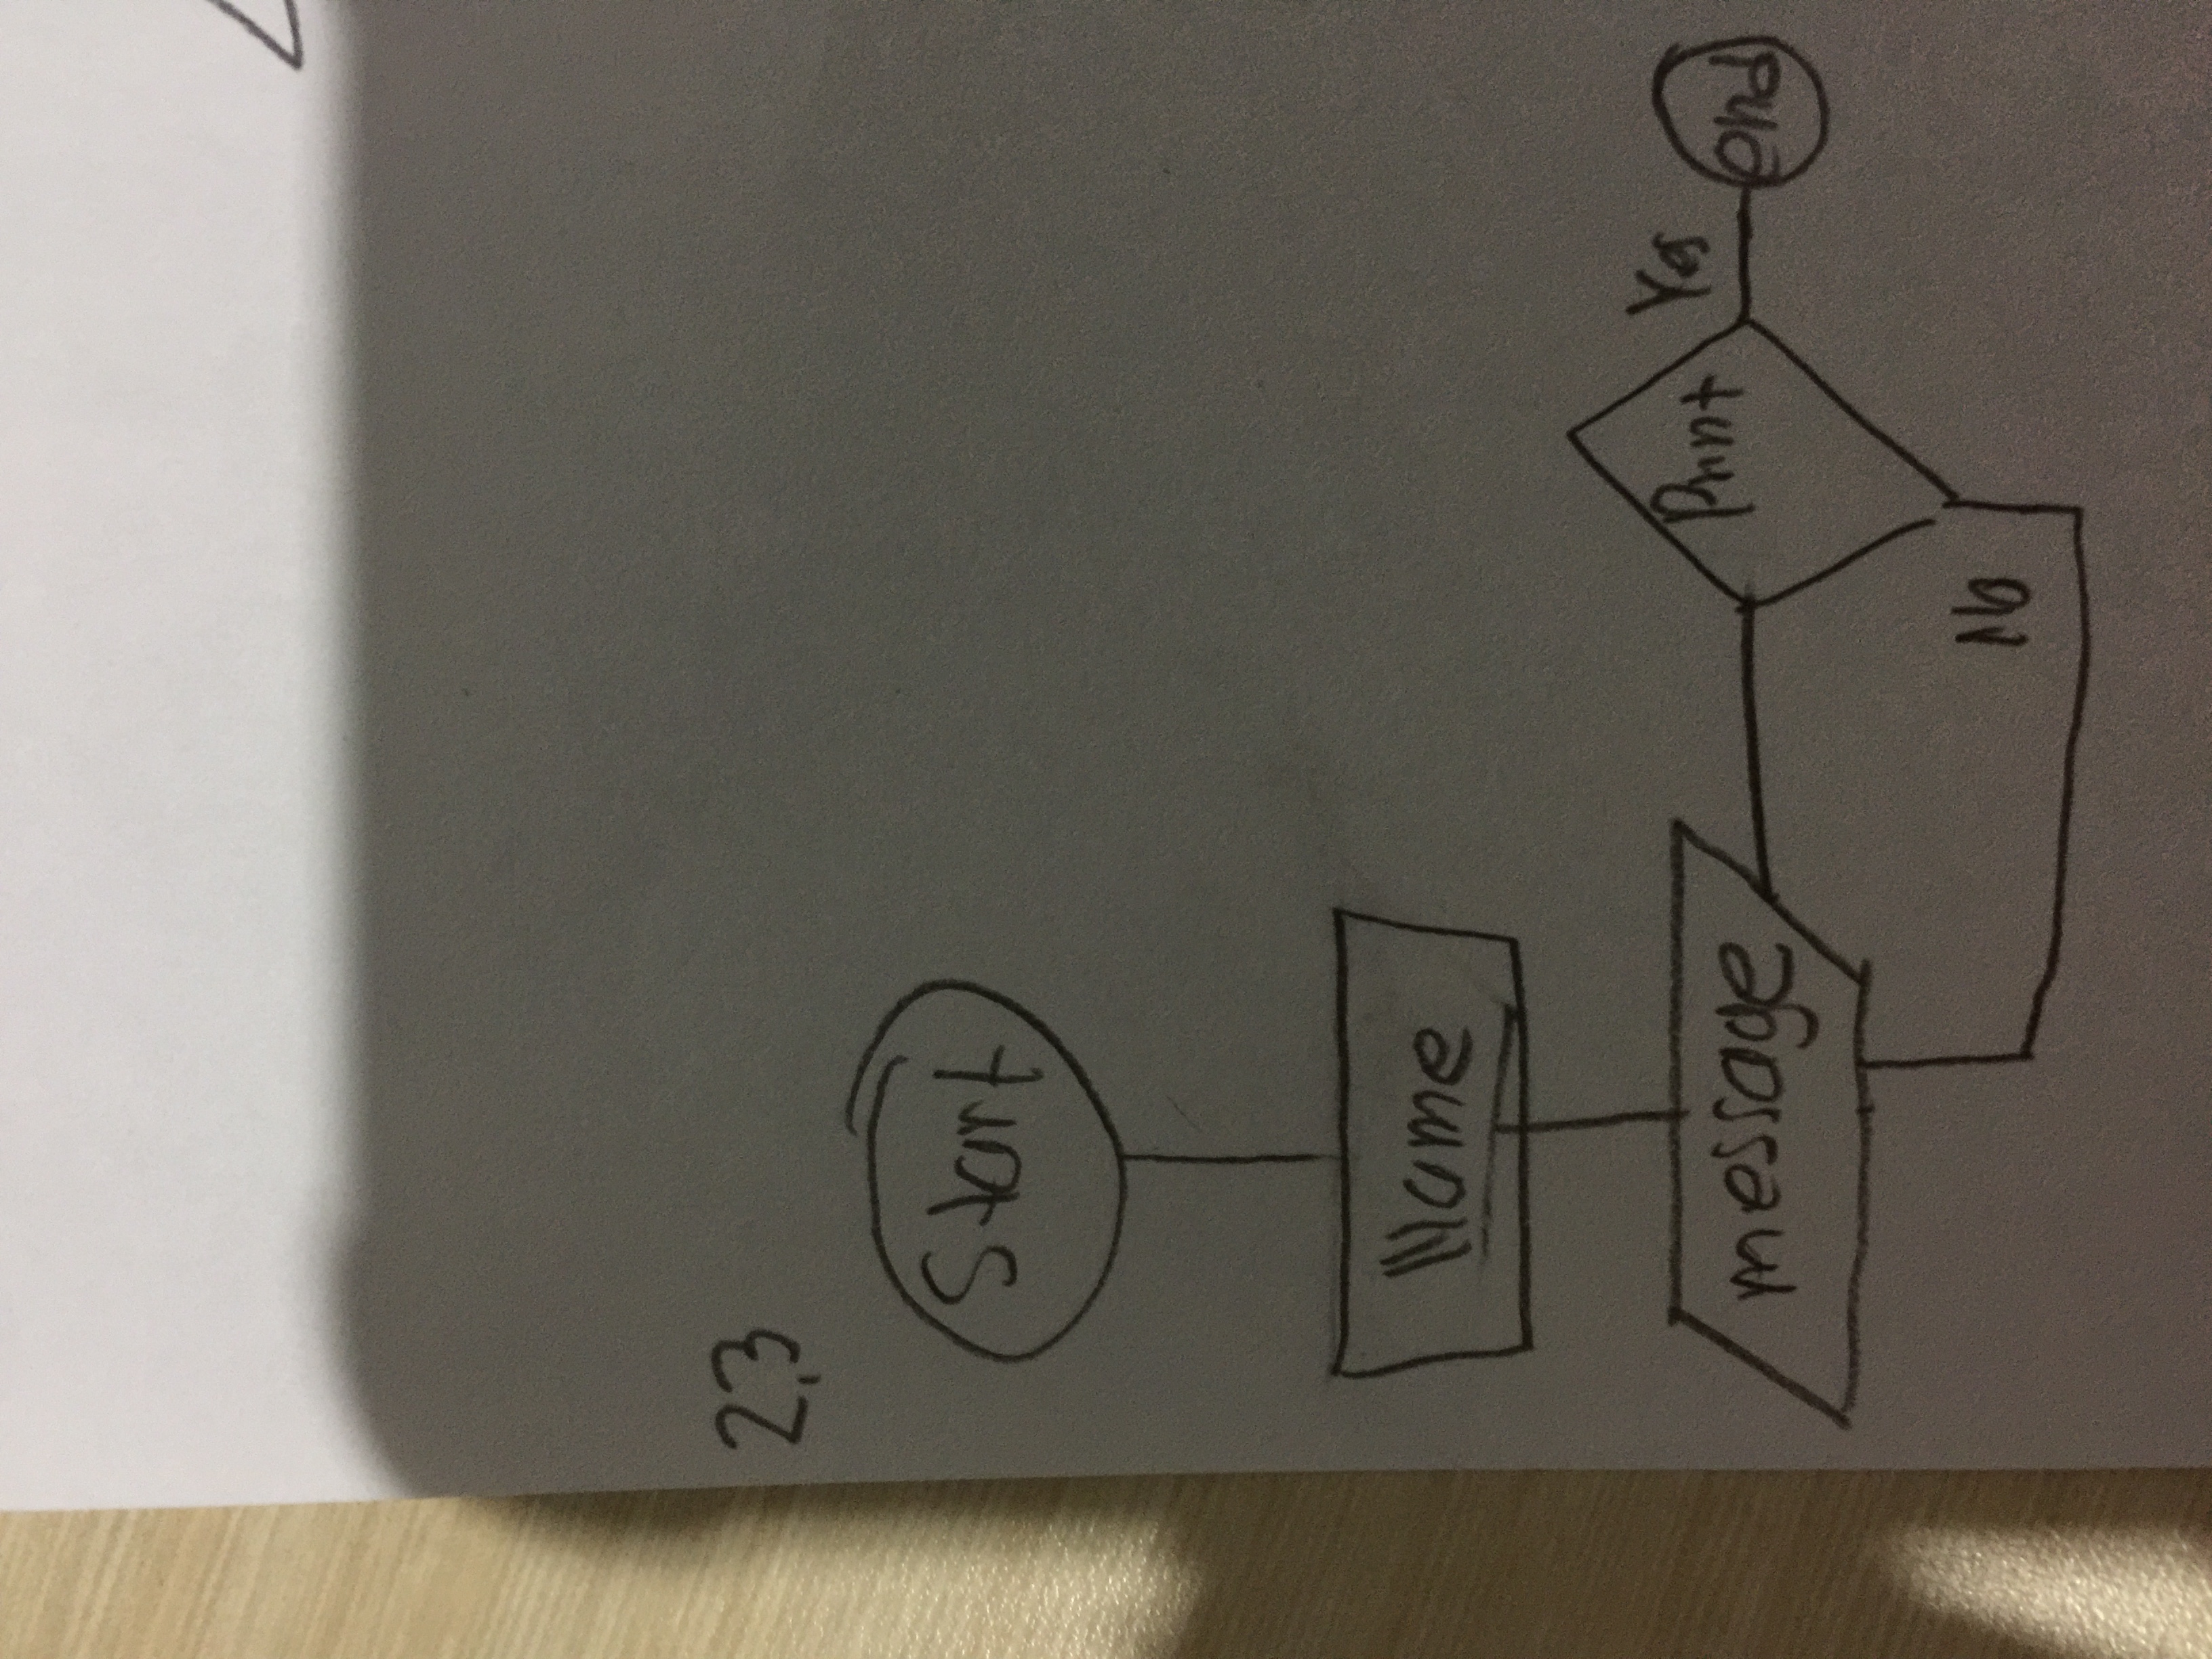 2,3
Start
Name
message
Print
Yes
end
No